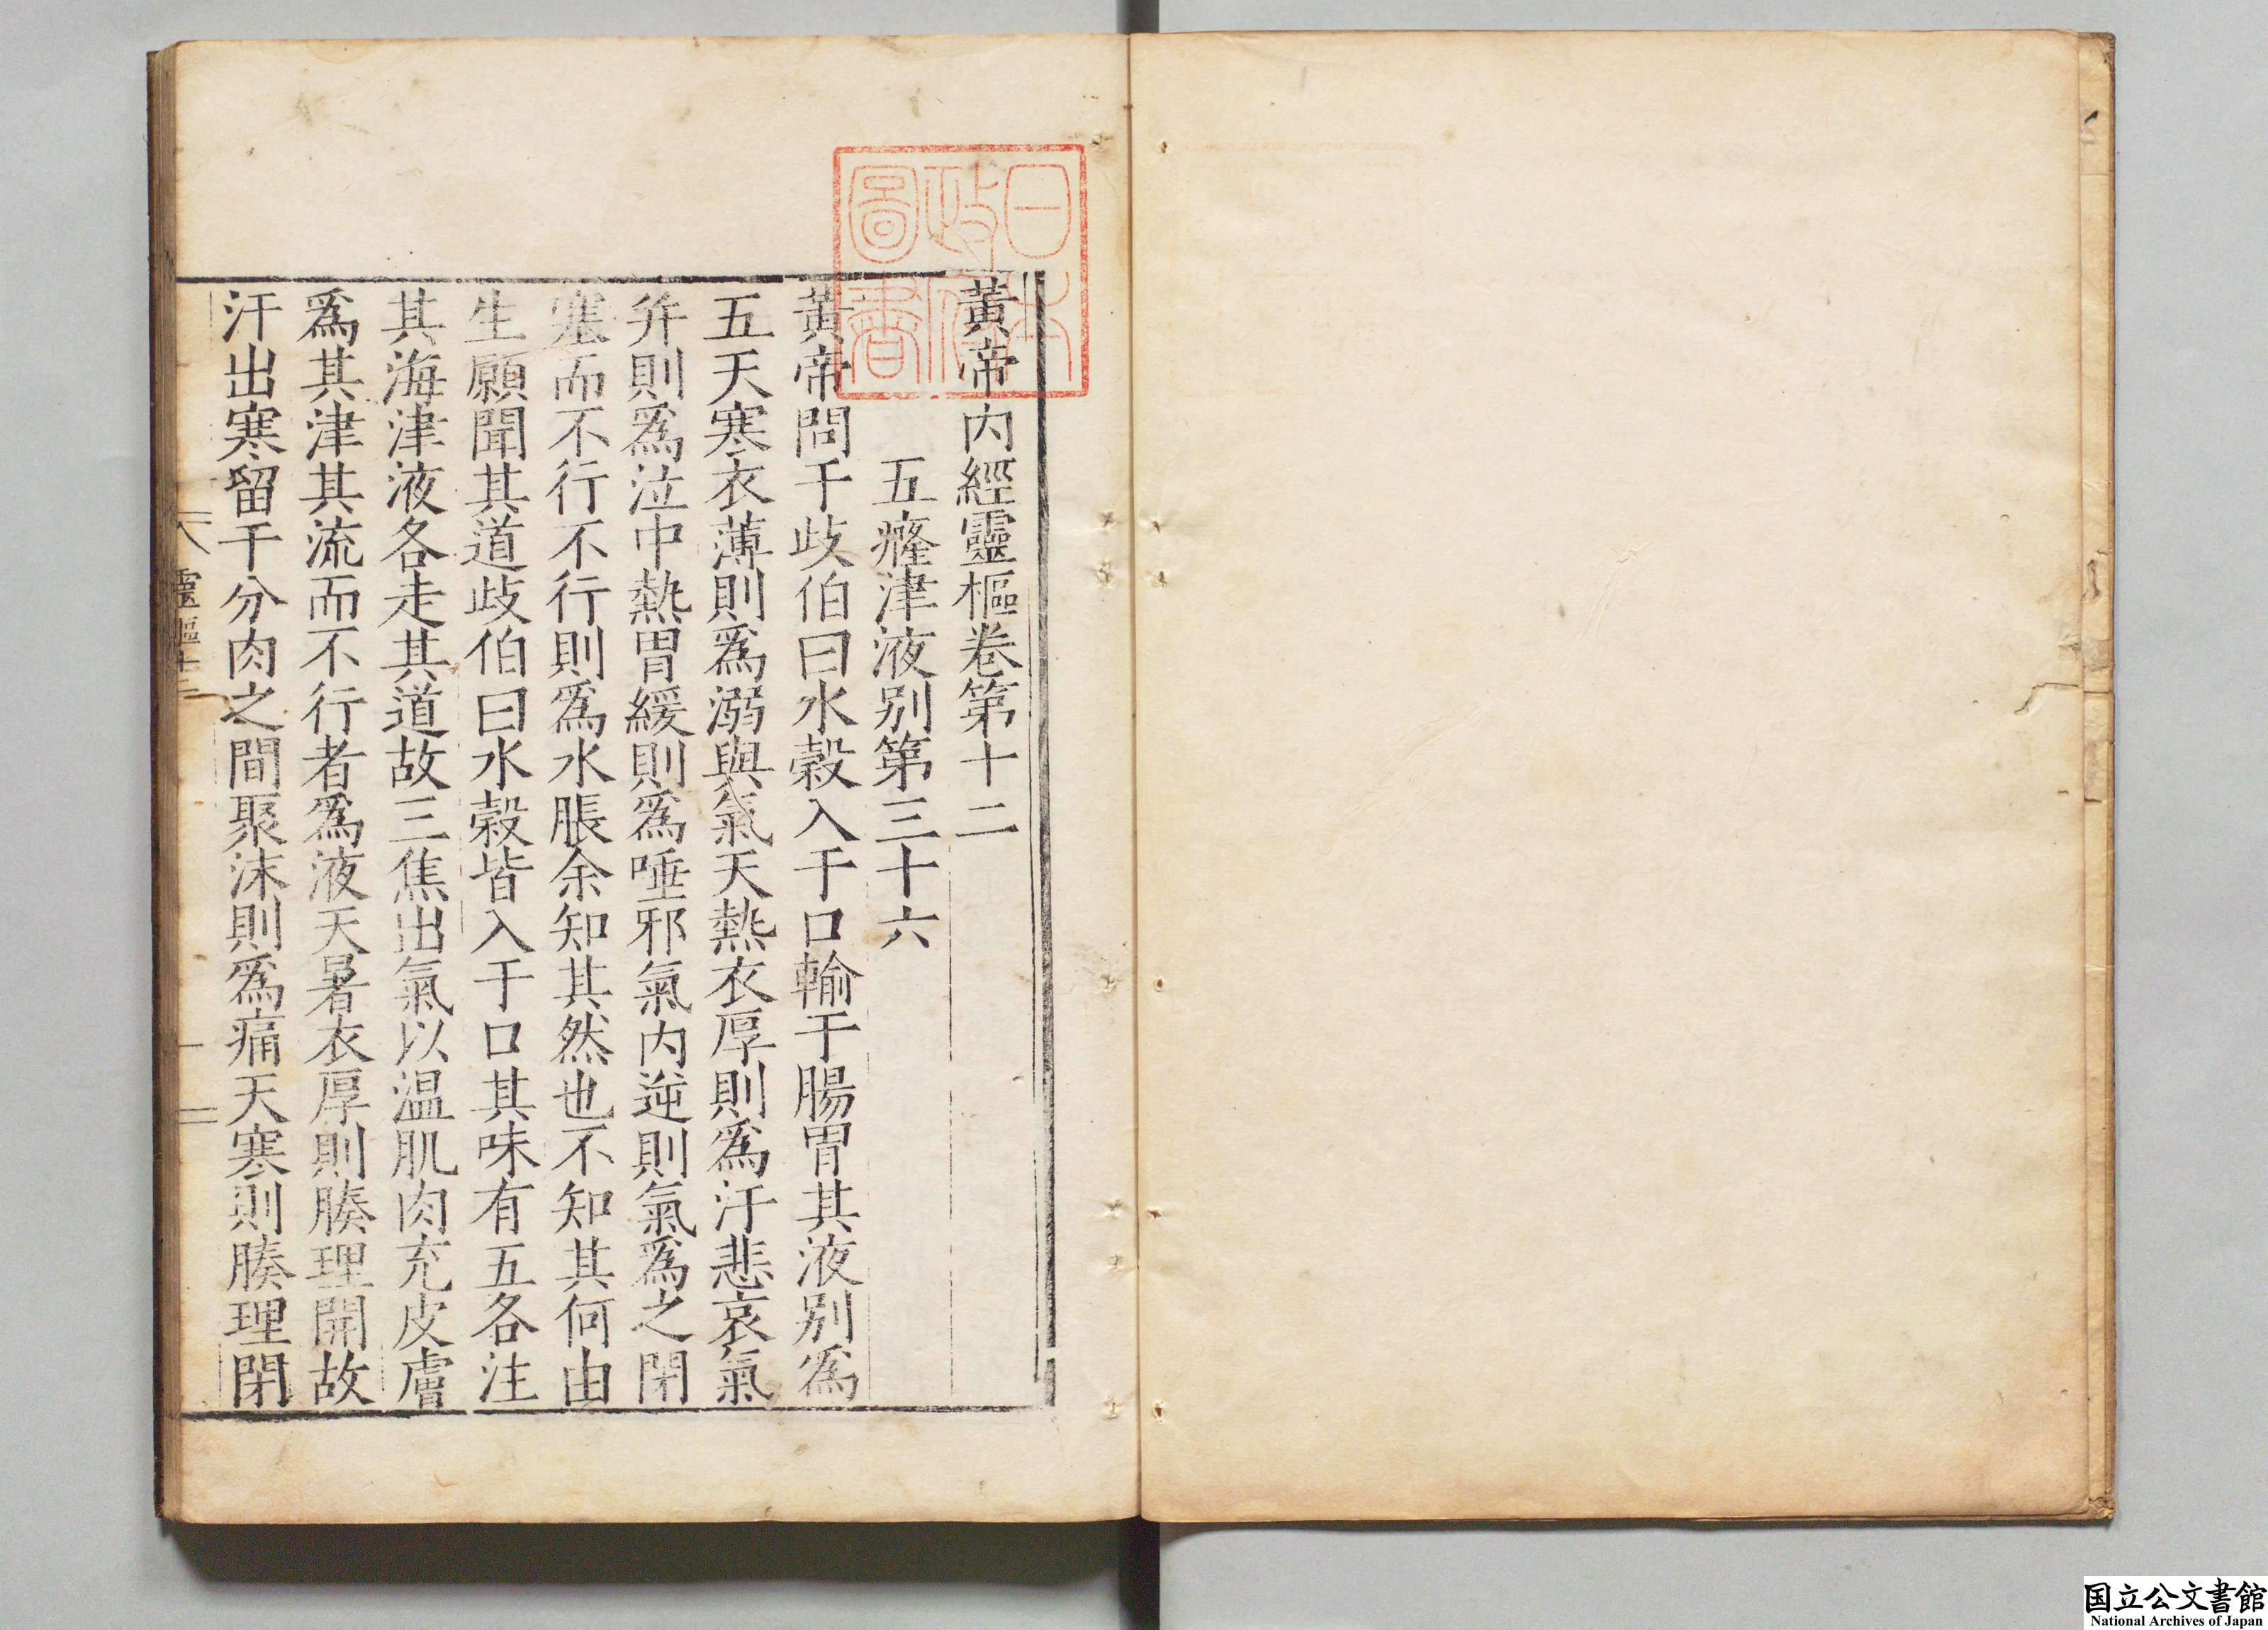 黃帝内經靈樞卷第十二
五癃津液别第三十六
黃帝問于歧伯曰水榖入于口輸于腸胃其液别爲
五天寒衣薄則爲溺與氣天熱衣厚則爲汗悲哀氣
并則爲泣中熱胃緩則爲唾邪氣内逆則氣爲之閉
塞而不行不行則爲水脹余知其然也不知其何由
生願聞其道歧伯曰水榖皆入于口其味有五各注
其海津液各走其道故三焦出氣以温肌肉充皮膚
爲其津其流而不行者爲液天暑衣厚則腠理開故
汗出寒留于分肉之間聚沫則爲痛天寒則腠理閉
靈樞十二
一
日本
政府
圖書
国立公文書館
National Archives of Japan